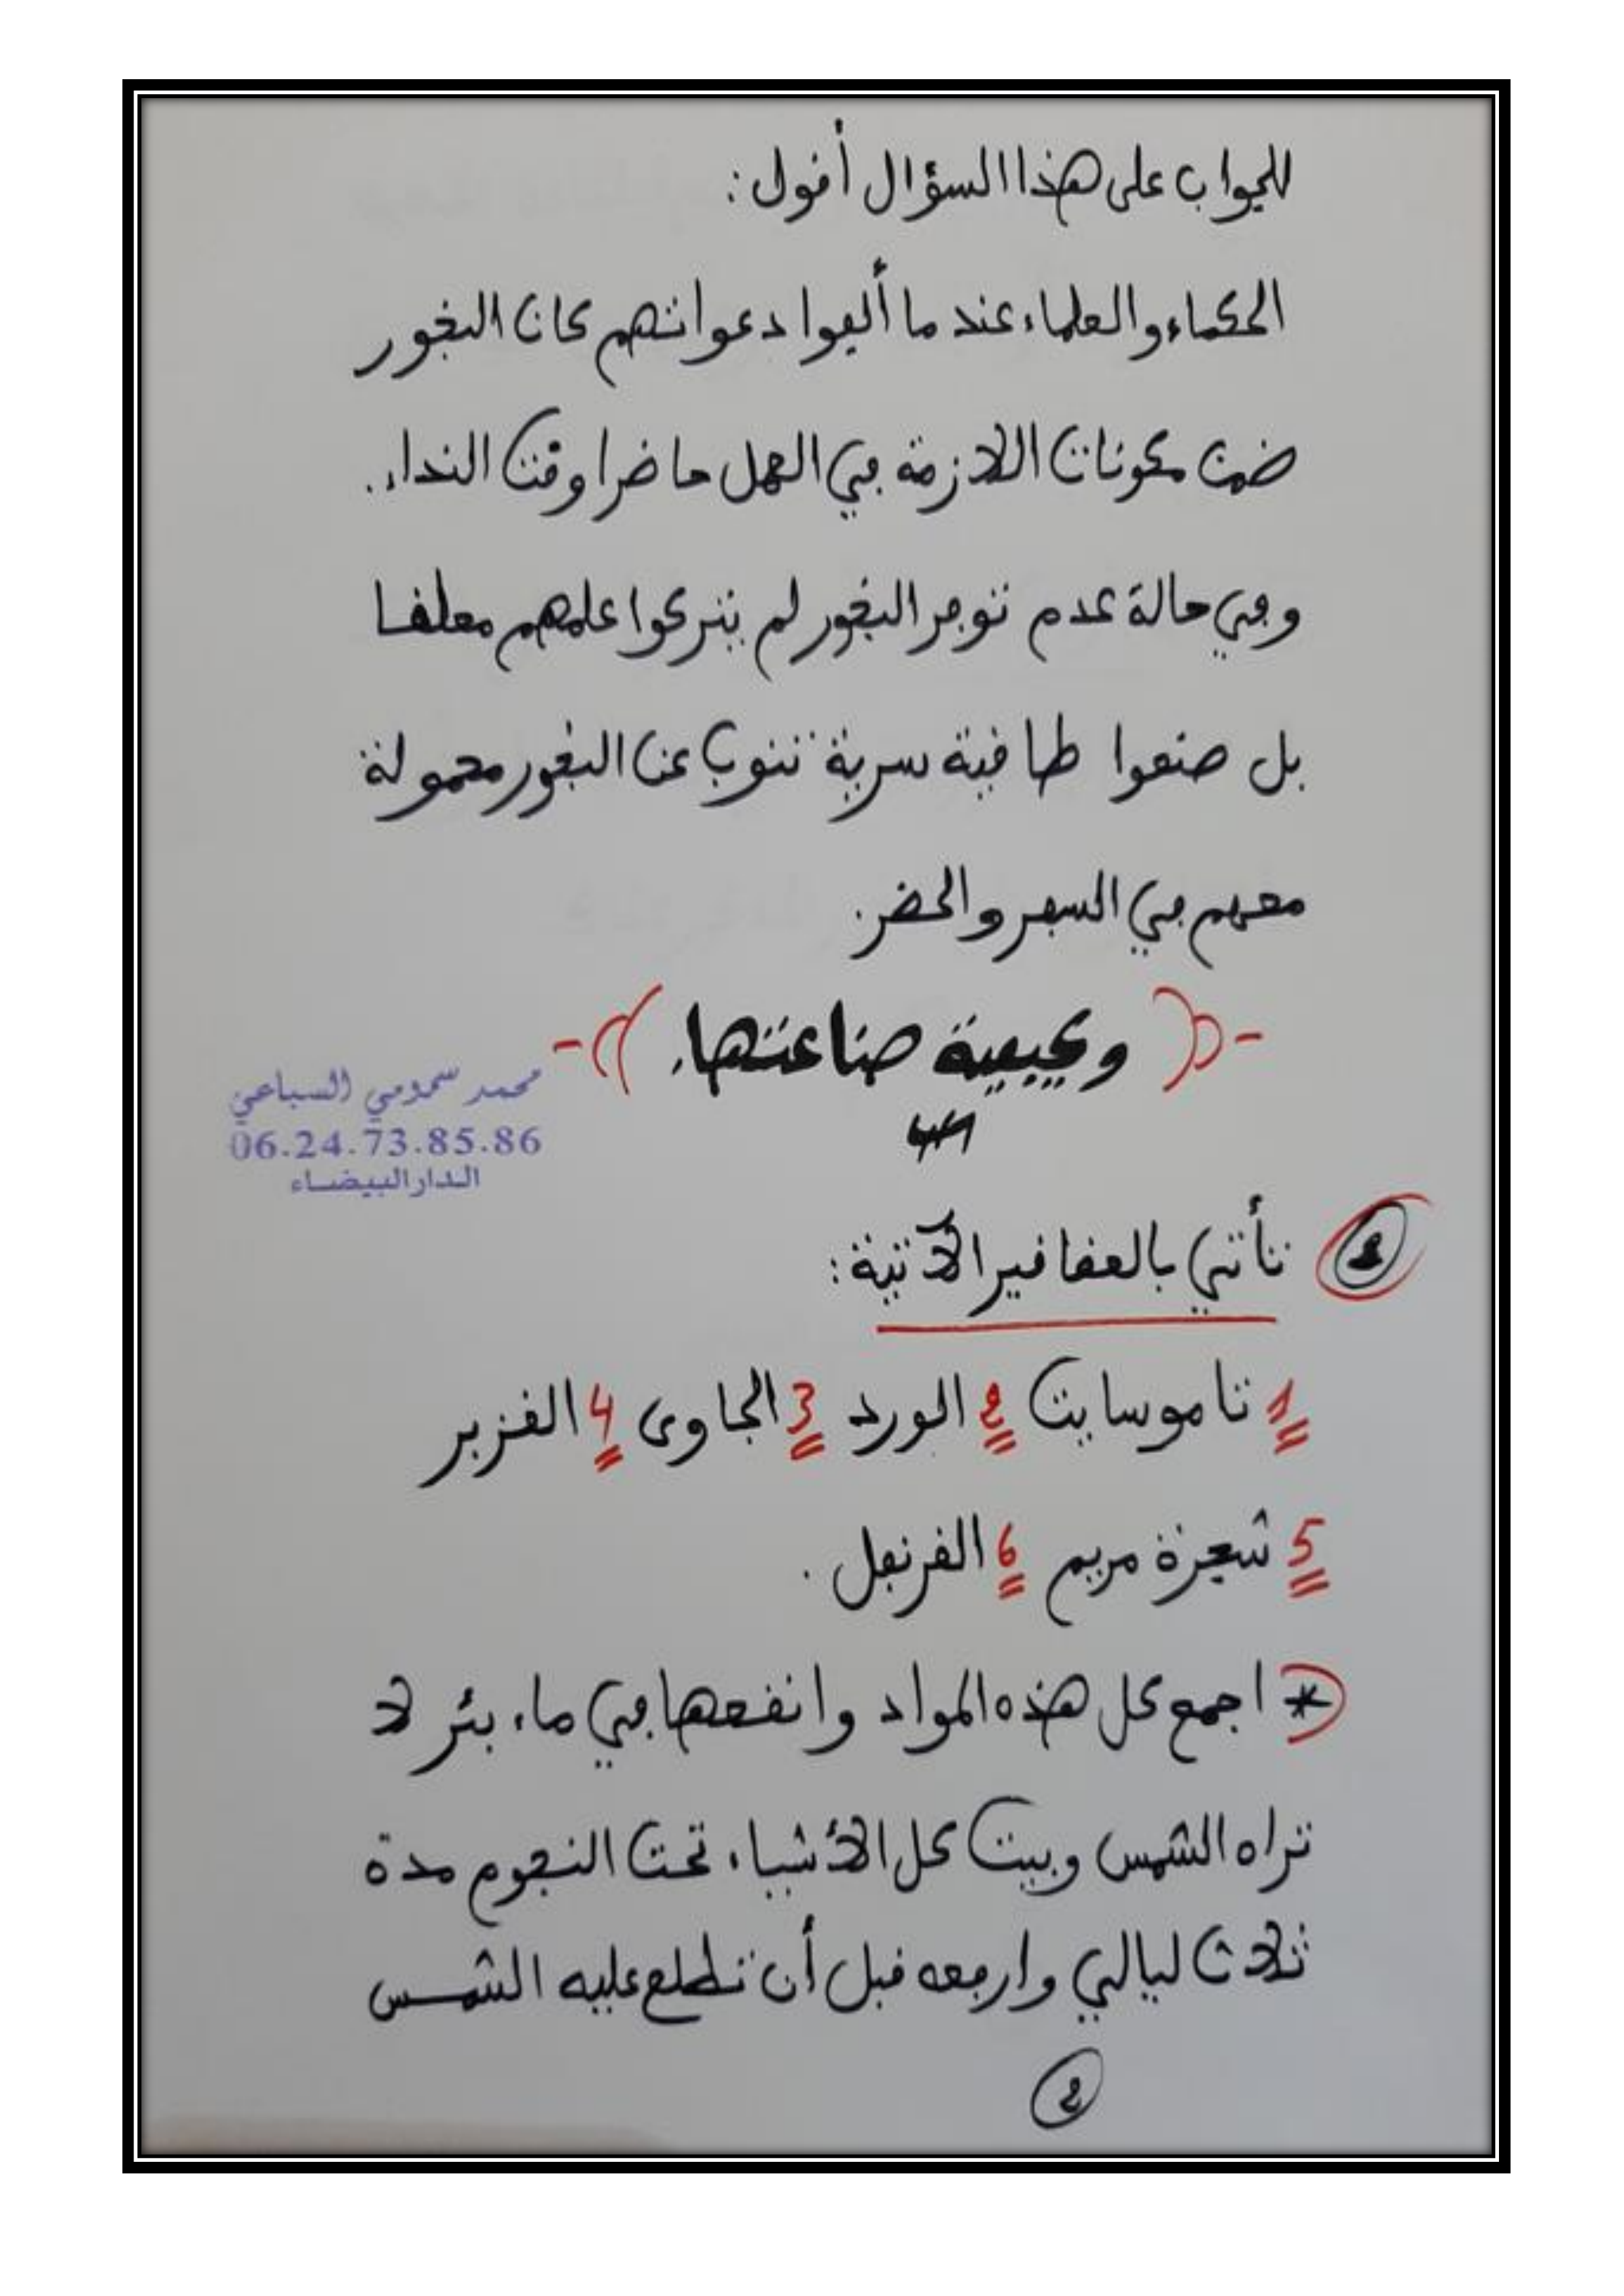 للجواب على هذا السؤال أقول:
الحكماء والعلماء عندما ألفوا دعواتهم كان البخور
ضمن مكونات اللازمة في العمل حاضرا وقت النداء.
وفي حالة عدم توفر البخور لم يتركوا علمهم معلقا
بل صنعوا طاقية سرية تنوب عن البخور محمولة
معهم في السفر والحضر.
-(( وكيفية صناعتها. ))-
محمد سمومي السباعي
06.24.73.85.86
الدار البيضاء
تأتي بالعقاقير الآتية:
1 تاموسايت 2 الورد 3 الجاوى 4 القزبر
5 شجرة مريم 6 القرنفل.
* اجمع كل هذه المواد وانقعها في ماء بئر لا
تراه الشمس وبيت كل الأشياء تحت النجوم مدة
ثلاث ليالي وارفعه قبل أن تطلع عليه الشمس
2